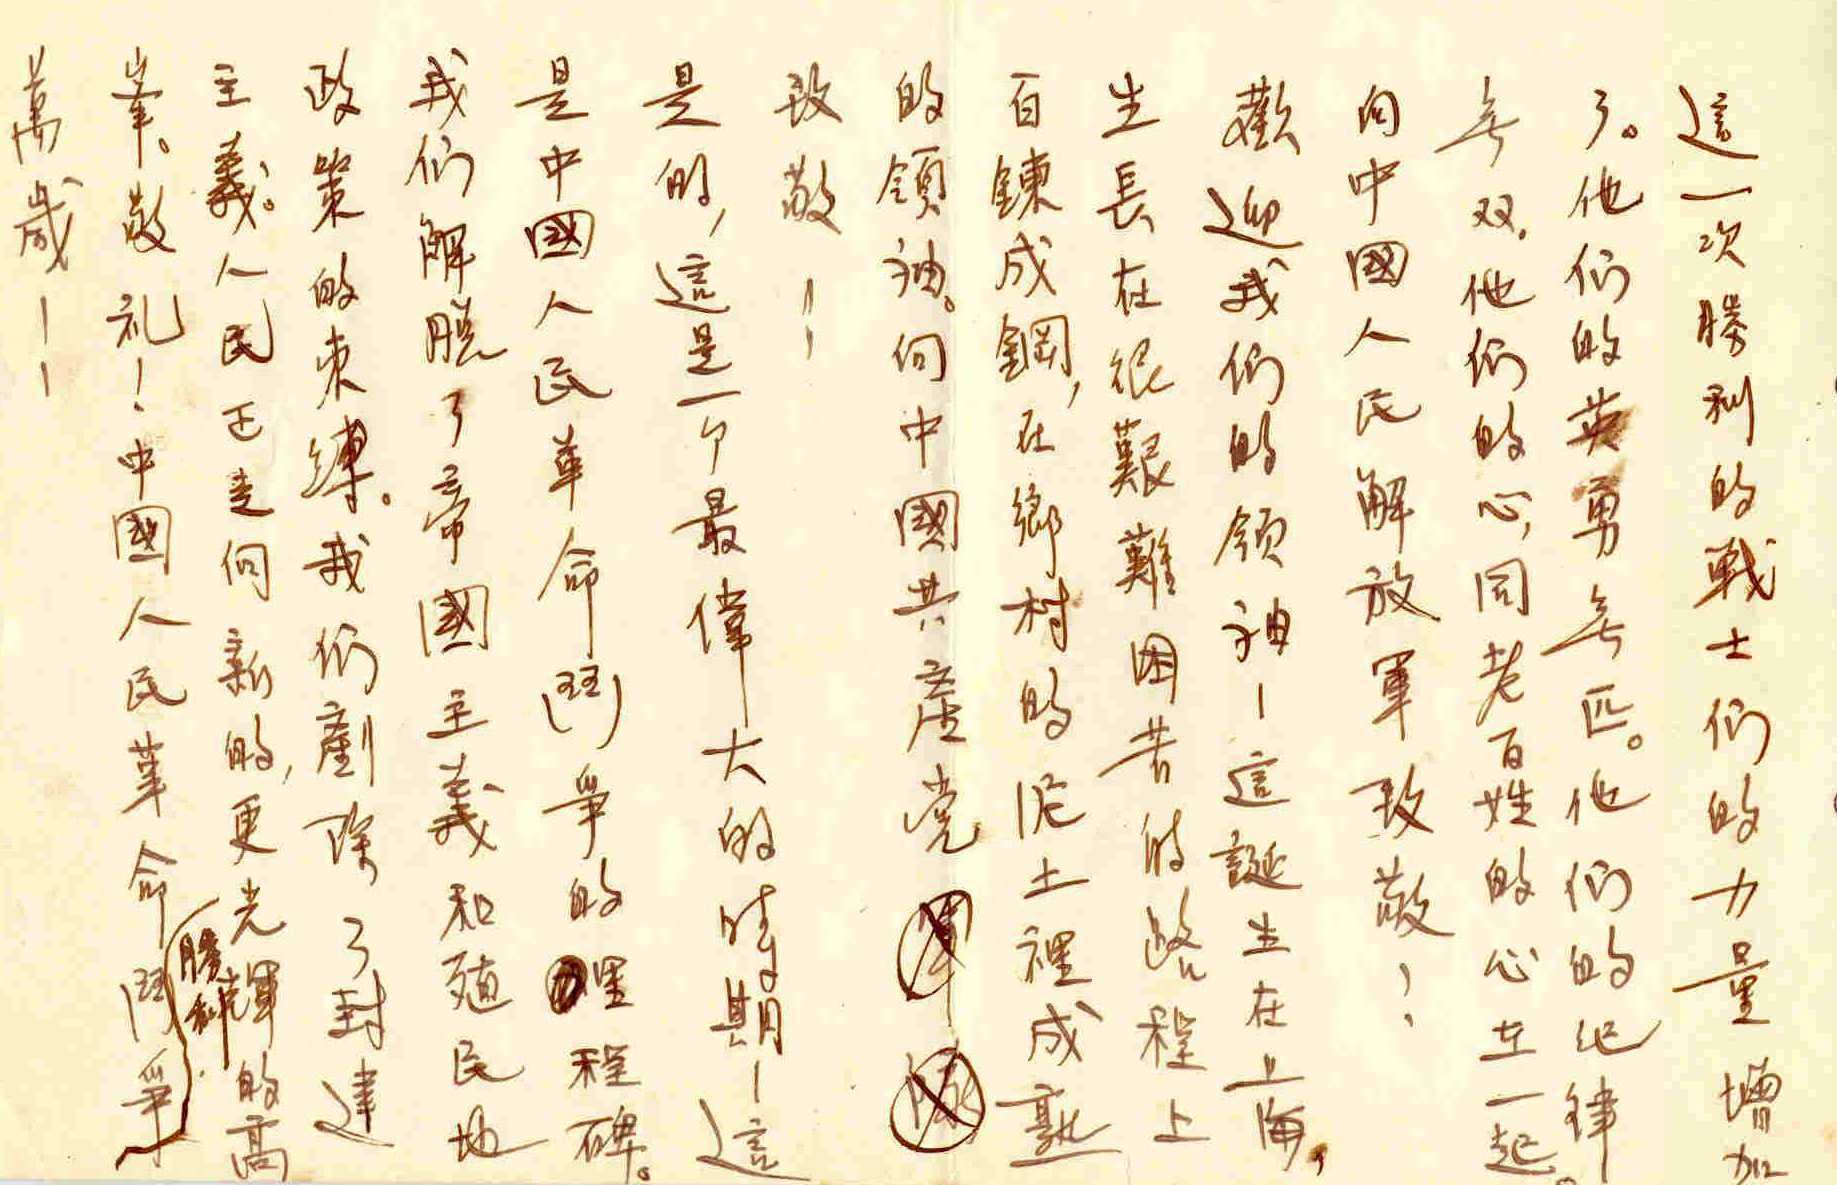 這一次勝利的戰士们的力量增加
了。他们的英勇無匹。他们的纪律
無双。他们的心，同老百姓的心在一起。
向中國人民解放軍致敬！！
歡迎我们的领袖—這誕生在上海，
生長在很艱難困苦的路程上
百鍊成鋼，在鄉村的泥土裡成熟
的领袖。向中國共產党
致敬！！
是的，這是一个最偉大的時期—這
是中國人民革命鬥爭的里程碑。
我们解脱了帝國主義和殖民地
政策的束縛。我们剷除了封建
主義。人民正走向新的，更光輝的高
峯。敬礼！中國人民革命鬥爭
勝利
萬歲！！